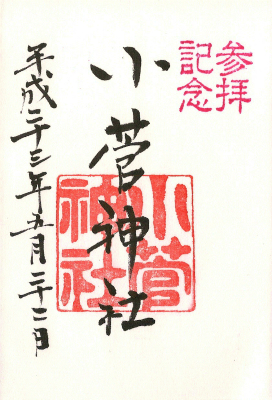 参拝
記念
小菅神社
小菅
神社
平成二十三年五月二十二日